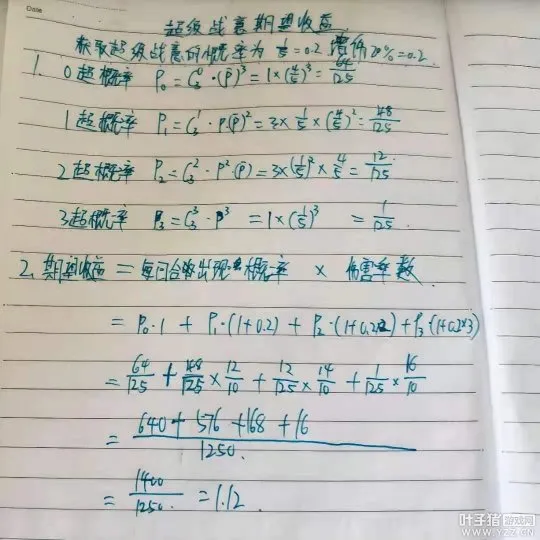 Date
超级战意期望收益
获取超级战意的概率为 1/5=0.2 增伤20%=0.2
1. 0超概率 P₀=C₃⁰·(P̄)³=1×(4/5)³=64/125
1超概率 P₁=C₃¹·P·(P̄)²=3×1/5×(4/5)²=48/125
2超概率 P₂=C₃²·P²·(P̄)=3×(1/5)²×4/5=12/125
3超概率 P₃=C₃³·P³=1×(1/5)³=1/125
2. 期望收益=每回合出现概率×伤害率数
=P₀·1+P₁·(1+0.2)+P₂·(1+0.2×2)+P₃·(1+0.2×3)
=64/125+48/125×12/10+12/125×14/10+1/125×16/10
=640+576+168+16/1250
=1400/1250=1.12
叶子猪游戏网
WWW.YZZ.CN